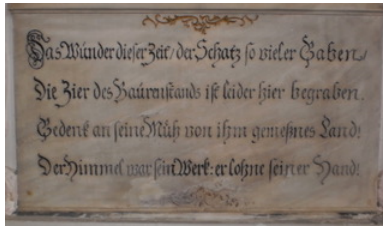 Das Wunder dieser Zeit/ der Schatz so vieler Gaben/
Die Zier des Baurenstands ist leider hier begraben.
Gedenk an seine Müh von ihm genießnes Land!
Der Himmel war sein Werk: er lohne seiner Hand!